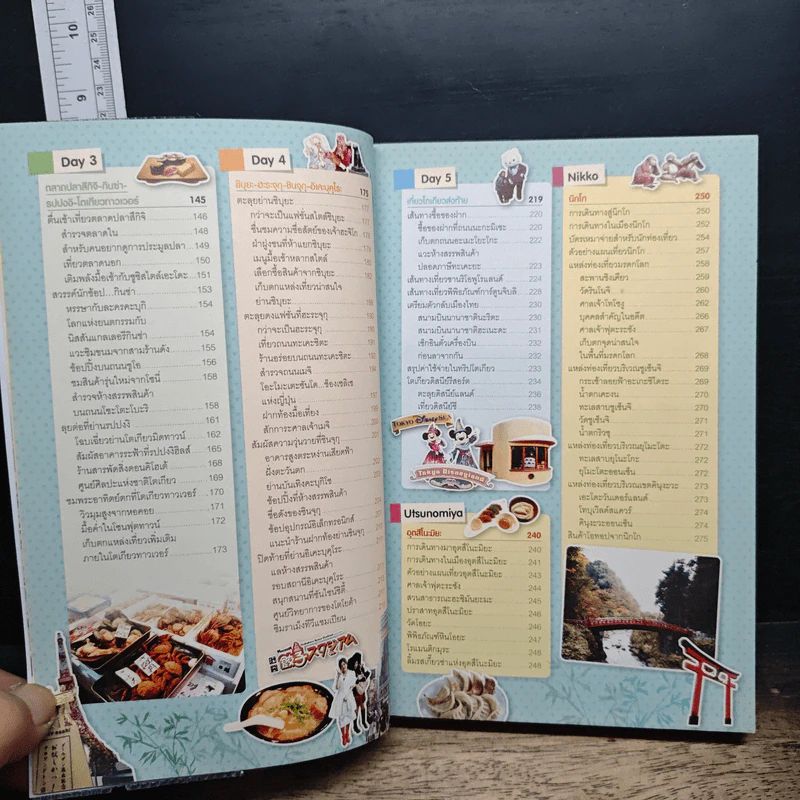 10
26
25
24
9
Day 3
ตลาดปลาสึกิจิ-กินซ่า-
รปปงงิ-โตเกียวทาวเวอร์ 145
ตื่นเช้าเที่ยวตลาดปลาสึกิจิ 146
สำรวจตลาดใน 148
สำหรับคนอยากดูการประมูลปลา 149
เที่ยวตลาดนอก 150
เติมพลังมื้อเช้ากับซูชิสไตล์เอะโดะ 151
สวรรค์นักช้อป...กินซ่า 153
หรรษากับละครคะบุกิ 154
โลกแห่งยนตกรรมกับ
นิสสันแกลเลอรีกินซ่า 154
แวะชิมขนมจากสามร้านดัง 155
ช้อปปิ้งบนถนนชูโอ 156
ชมสินค้ารุ่นใหม่จากโซนี่ 158
สำรวจห้างสรรพสินค้า
บนถนนโซะโตะโบะริ 158
ลุยต่อที่ย่านรปปงงิ 161
โฉบเฉี่ยวย่านโตเกียวมิดทาวน์ 162
สัมผัสอาคารระฟ้าที่รปปงงิฮิลส์ 165
ร้านสารพัดสิ่งดอนคิโฮเต้ 168
ศูนย์ศิลปะแห่งชาติโตเกียว 169
ชมพระอาทิตย์ตกที่โตเกียวทาวเวอร์ 170
วิวมุมสูงจากหอคอย 171
มื้อค่ำในโซนฟุตทาวน์ 172
เก็บตกแหล่งเที่ยวเพิ่มเติม
ภายในโตเกียวทาวเวอร์ 173
Day 4
ชิบุยะ-ฮะระจุกุ-ชินจุกุ-อิเคะบุคุโระ 175
ตะลุยย่านชิบุยะ
กว่าจะเป็นแฟชั่นสไตล์ชิบุยะ
ชื่นชมความซื่อสัตย์ของเจ้าฮะจิโกะ
ฝ่าฝูงชนที่ห้าแยกชิบุยะ
เมนูมื้อเช้าหลากสไตล์
เลือกซื้อสินค้าจากชิบุยะ
เก็บตกแหล่งเที่ยวน่าสนใจ
ย่านชิบุยะ 188
ตะลุยดงแฟชั่นที่ฮะระจุกุ 190
กว่าจะเป็นฮะระจุกุ 190
เที่ยวถนนทะเคะชิตะ 192
ร้านอร่อยบนถนนทะเคะชิตะ 194
สำรวจถนนเมจิ
โอะโมะเตะซันโด...ช็องเซลิเซ
แห่งญี่ปุ่น
ฝากท้องมื้อเที่ยง
สักการะศาลเจ้าเมจิ
สัมผัสความวุ่นวายที่ชินจุกุ
อาคารสูงตระหง่านเสียดฟ้า
ฝั่งตะวันตก
ย่านบันเทิงคะบุกิโจ
ช้อปปิ้งที่ห้างสรรพสินค้า
ชื่อดังของชินจุกุ
ช้อปอุปกรณ์อิเล็กทรอนิกส์
แนะนำร้านฝากท้องย่านชินจุกุ
ปิดท้ายที่ย่านอิเคะบุคุโระ
แลห้างสรรพสินค้า
รอบสถานีอิเคะบุคุโระ
สนุกสนานที่ซันไชน์ซิตี้
ศูนย์วิทยาการของโตโยต้า
ชิมราเม็งทีวีแชมเปียน
Day 5
เที่ยวโตเกียวส่งท้าย 219
เส้นทางซื้อของฝาก 220
ซื้อของฝากที่ถนนนะกะมิเซะ 220
เก็บตกถนนอะเมะโยะโกะ 222
แวะห้างสรรพสินค้า
ปลอดภาษีทะเคะยะ 223
เส้นทางเที่ยวซานริโอพูโรแลนด์ 224
เส้นทางเที่ยวพิพิธภัณฑ์การ์ตูนจิบลิ 228
เตรียมตัวกลับเมืองไทย 230
สนามบินนานาชาตินะริตะ 230
สนามบินนานาชาติฮะเนะดะ 230
เช็กอินตั๋วเครื่องบิน 232
ก่อนลาจากกัน 232
สรุปค่าใช้จ่ายในทริปโตเกียว 233
โตเกียวดิสนีย์รีสอร์ต 234
ตะลุยดิสนีย์แลนด์ 236
เที่ยวดิสนีย์ซี 238
TOKYO DISNEY SEA
Tokyo Disneyland
Utsunomiya
อุตสึโนะมิยะ 240
การเดินทางมาอุตสึโนะมิยะ 240
การเดินทางในเมืองอุตสึโนะมิยะ 241
ตัวอย่างแผนเที่ยวอุตสึโนะมิยะ 241
ศาลเจ้าฟุตะระซัง 244
สวนสาธารณะฮะชิมันยะมะ 245
ปราสาทอุตสึโนะมิยะ 246
วัดโอยะ 246
พิพิธภัณฑ์หินโอยะ 247
โรแมนติกมุระ 248
ลิ้มรสเกี๊ยวซ่าแห่งอุตสึโนะมิยะ 248
Nikko
นิกโก 250
การเดินทางสู่นิกโก 250
การเดินทางในเมืองนิกโก 252
บัตรเหมาจ่ายสำหรับนักท่องเที่ยว 254
ตัวอย่างแผนเที่ยวนิกโก 257
แหล่งท่องเที่ยวมรดกโลก 258
สะพานชิงเคียว 258
วัดรินโนจิ 260
ศาลเจ้าโทโชงู 262
บุคคลสำคัญในอดีต 266
ศาลเจ้าฟุตะระซัง 267
เก็บตกจุดน่าสนใจ
ในพื้นที่มรดกโลก 268
แหล่งท่องเที่ยวบริเวณชูเซ็นจิ 269
กระเช้าลอยฟ้าอะเกะชิไดระ 269
น้ำตกเคะงน 270
ทะเลสาบชูเซ็นจิ 270
วัดชูเซ็นจิ 271
น้ำตกริวซุ 271
แหล่งท่องเที่ยวบริเวณยุโมะโตะ 272
ทะเลสาบยุโนะโกะ 272
ยุโมะโตะออนเซ็น 272
แหล่งท่องเที่ยวบริเวณเขตคินุงะวะ 273
เอะโดะวันเดอร์แลนด์ 273
โทบุเวิลด์สแควร์ 274
คินุงะวะออนเซ็น 274
สินค้าโอทอปจากนิกโก 275